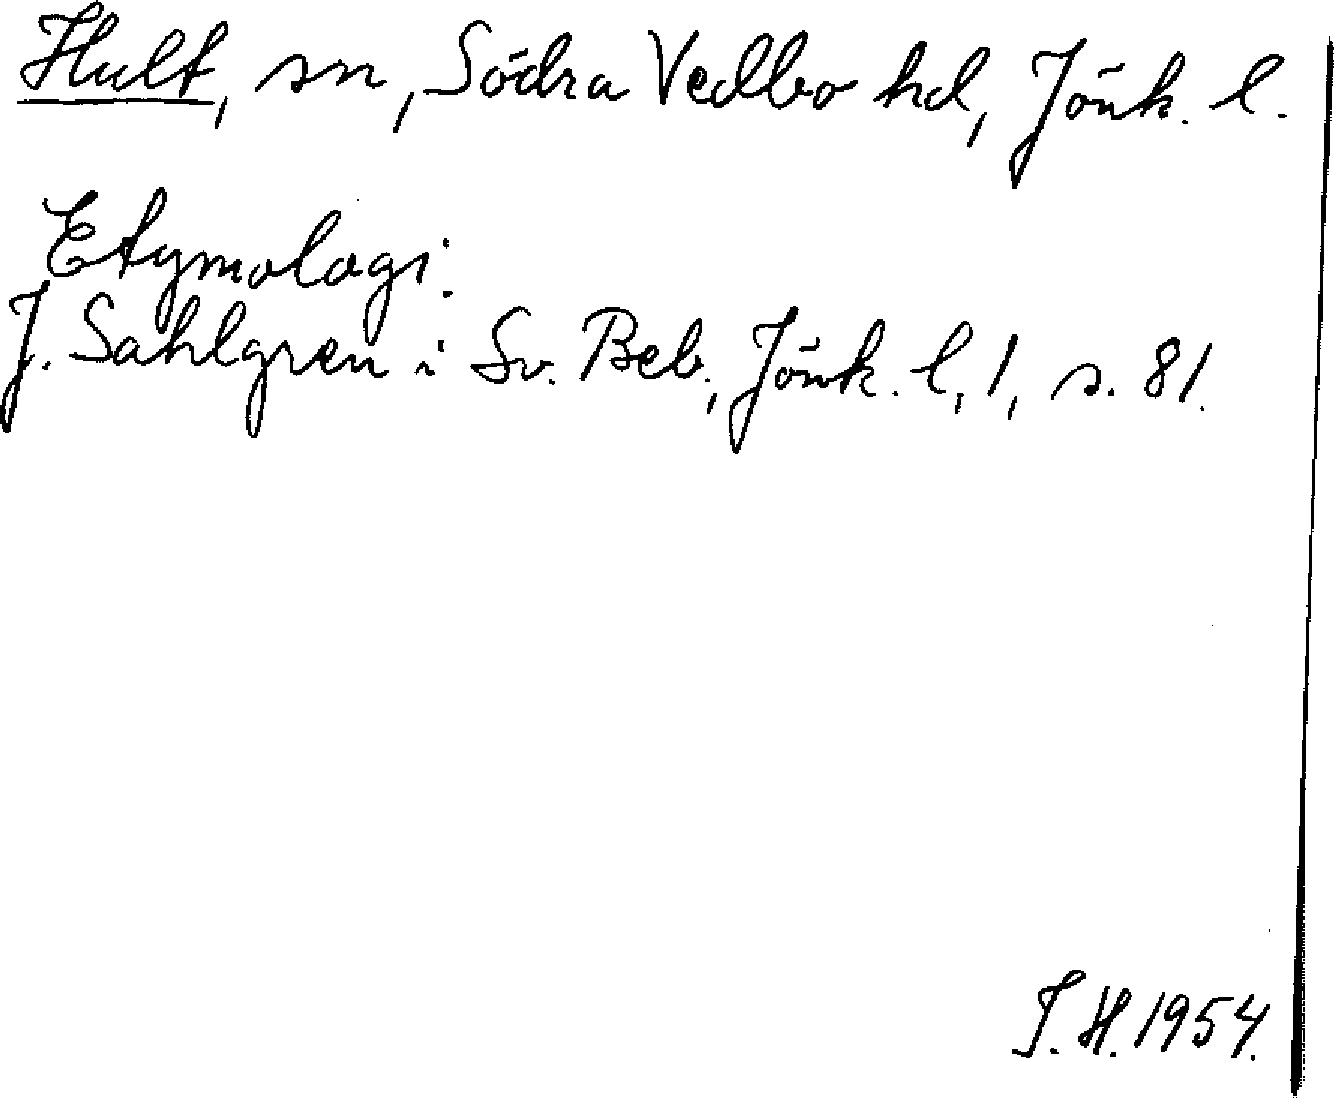 Hult, sn, Södra Vedbo hd, Jönk. l.
Etymologi:
J. Sahlgren i Sv. Beb., Jönk. l, 1, s. 81.
I. H. 1954.